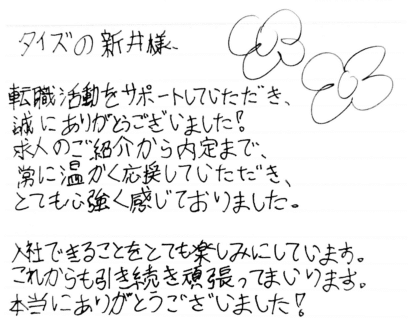 タイズの新井様、
転職活動をサポートしていただき、
誠にありがとうございました!
求人のご紹介から内定まで、
常に温かく応援していただき、
とても心強く感じておりました。
入社できることをとても楽しみにしています。
これからも引き続き頑張ってまいります。
本当にありがとうございました!